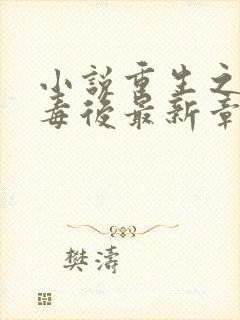 小説重生之
毒後最新章
樊濤